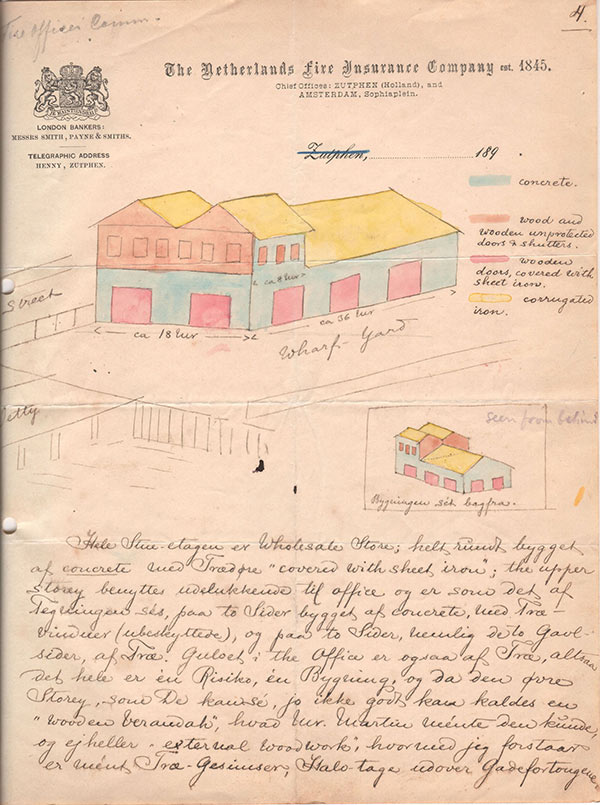 Fire Offices Comm.
4.
The Netherlands Fire Insurance Company est. 1845.
Chief Offices: ZUTPHEN (Holland), and
AMSTERDAM, Sophiaplein.
LONDON BANKERS:
MESSRS SMITH, PAYNE & SMITHS.
TELEGRAPHIC ADDRESS
HENNY, ZUTPHEN.
Zutphen, 189
concrete.
wood and
wooden unprotected
doors & shutters.
wooden
doors, covered with
sheet iron.
corrugated
iron.
Street
ca 18
ca 36
Wharf-Yard
seen from behind
Bygningen sét bagfra.
Hele Stue-etagen er Wholesale Store; helt rundt bygget
af concrete med Trædøre "covered with sheet iron"; the upper
storey benyttes udelukkende til office og er som det af
Tegningen sés, paa to Sider bygget af concrete, med Træ-
vinduer (ubeskyttede), og paa to Sider, nemlig de to Gavl-
sider, af Træ. Gulvet i the Office er ogsaa af Træ, altsaa
det hele er én Risiko, én Bygning, og da den øvre
Storey, som De kan sé, jo ikke godt kan kaldes en
"wooden Verandah", hvad Mr. Martin ménte den kunde,
og ejheller "external woodwork", hvormed jeg forstaar
er mént Træ-Gesimser, udover